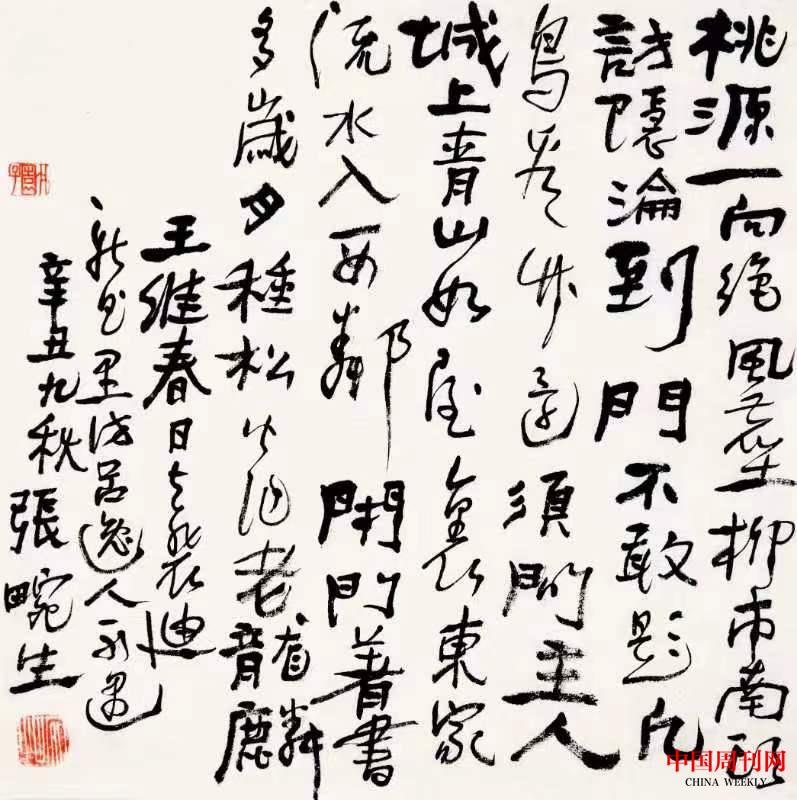 桃源一向絶風塵柳市南頭
訪隱淪到門不敢題凡
鳥看竹還須問主人
城上青山如屋裏東家
流水入西鄰閉門著書
多歲月種松皆作老龍鱗
王維春日與裴迪
新昌里訪呂逸人不遇
辛丑九秋張畹生
中国周刊网
CHINA WEEKLY